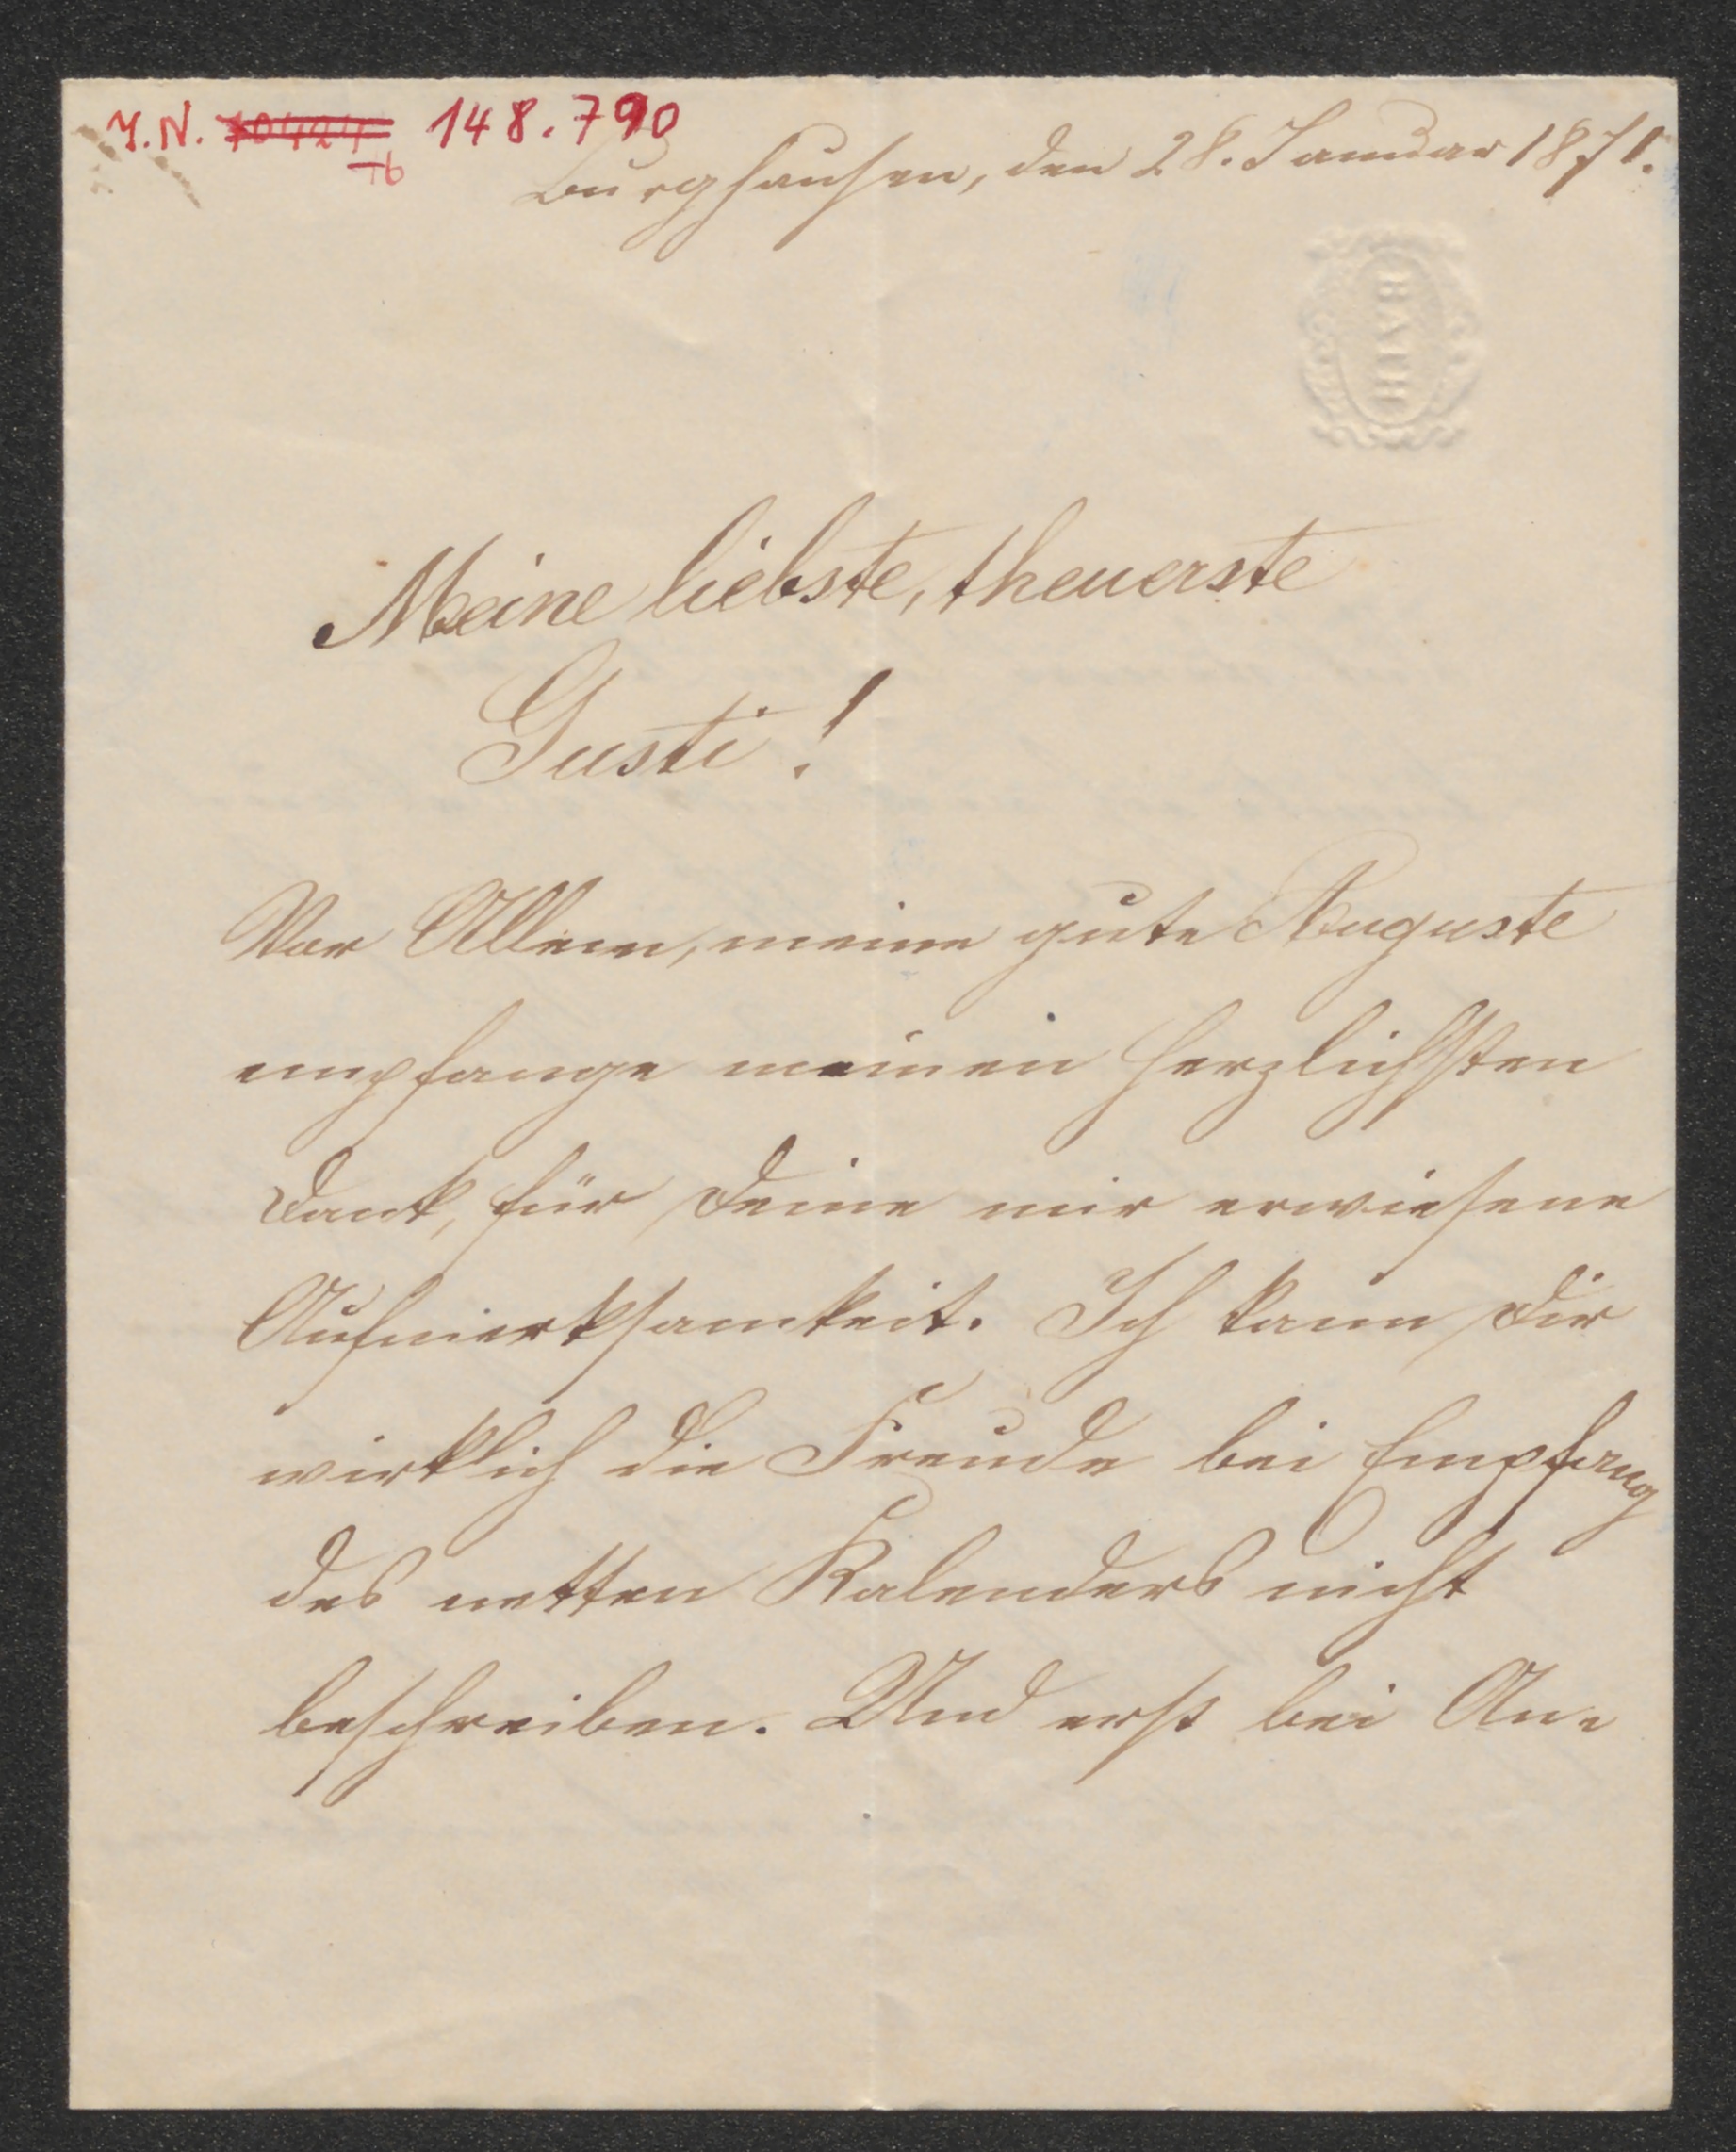 I.N. 148.790
Burghausen, den 28. Januar 1871.
BATH
Meine liebste, theuerste
Gusti!
Vor Allem, meine gute Auguste
empfange meinen herzlichsten
Dank, für Deine mir erwiesene
Aufmerksamkeit. Ich kann Dir
wirklich die Freude bei Empfang
des netten Kalenders nicht
beschreiben. Und erst bei An-